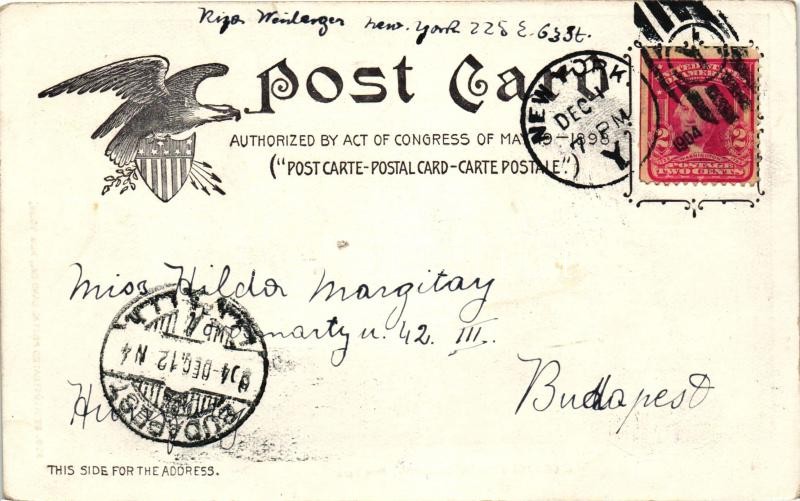 New-York 225 E. 63 St.
Post Card
NEW YORK
DEC 1
7 PM
1904
N.Y.
AUTHORIZED BY ACT OF CONGRESS OF MAY 19-1898.
("POST CARTE-POSTAL CARD-CARTE POSTALE.")
2 2
POSTAGE
TWO CENTS
Miss Hilda Margitay
u. 42. III.
Budapest
904 DEC. 12 N4
BUDAPEST
THIS SIDE FOR THE ADDRESS.